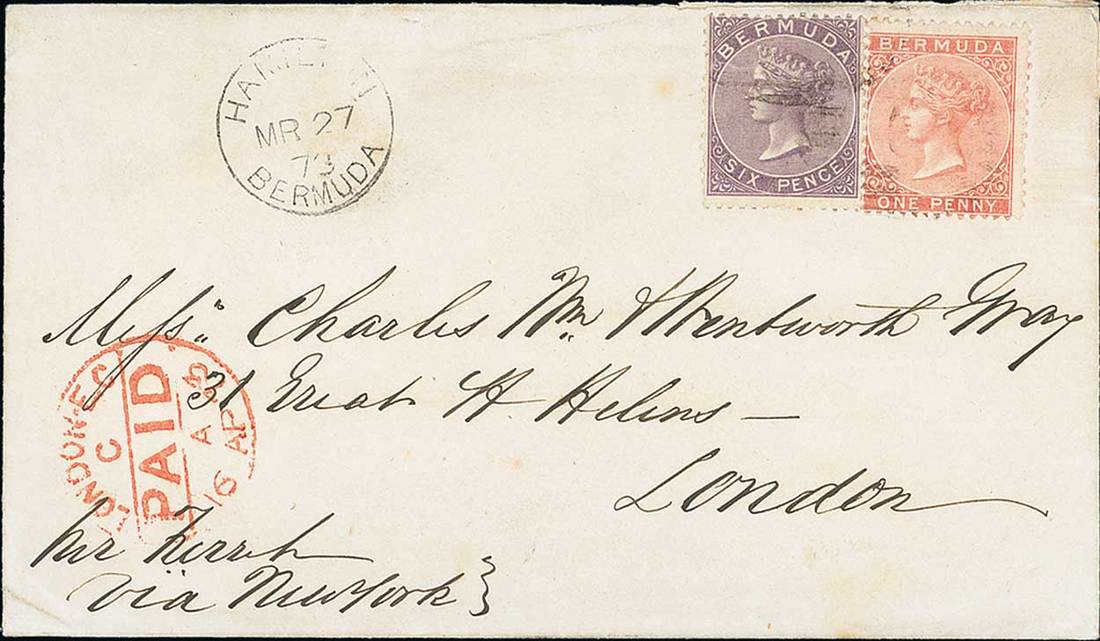 HAMILTON
MR 27
73
BERMUDA
BERMUDA
SIX PENCE
BERMUDA
ONE PENNY
Messrs Charles Wm Wentworth Gray
31 Great St Helens —
London
LONDON·E.C
C
PAID
A
16 AP
per
via New York